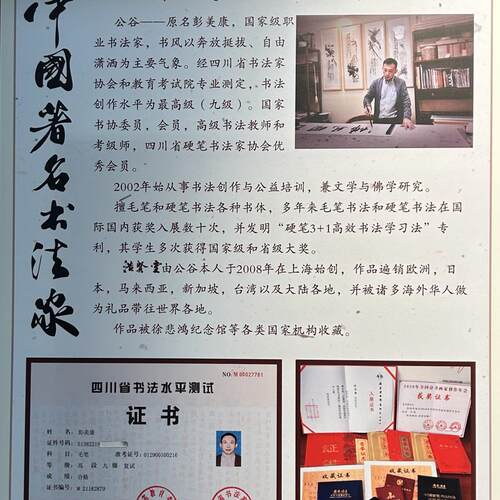 中國著名书法家
公谷——原名彭美康，国家级职
业书法家，书风以奔放挺拔、自由
潇洒为主要气象。经四川省书法家
协会和教育考试院专业测定，书法
创作水平为最高级（九级）。国家
书协委员，会员，高级书法教师和
考级师，四川省硬笔书法家协会优
秀会员。
2002年始从事书法创作与公益培训，兼文学与佛学研究。
擅毛笔和硬笔书法各种书体，多年来毛笔书法和硬笔书法在国
际国内获奖入展数十次，并发明“硬笔3+1高效书法学习法”专
利，其学生多次获得国家级和省级大奖。
由公谷本人于2008年在上海始创，作品遍销欧洲，日
本，马来西亚，新加坡，台湾以及大陆各地，并被诸多海外华人做
为礼品带往世界各地。
作品被徐悲鸿纪念馆等各类国家机构收藏。
NO:M 00027781
四川省书法水平测试
证书
姓名：彭美康
证件号码：
科目：毛笔 准考证号：012900100216
等级：高段九级 复试
成绩：合格
证书编号：M 21182879
入展证书
获奖证书
获奖证书